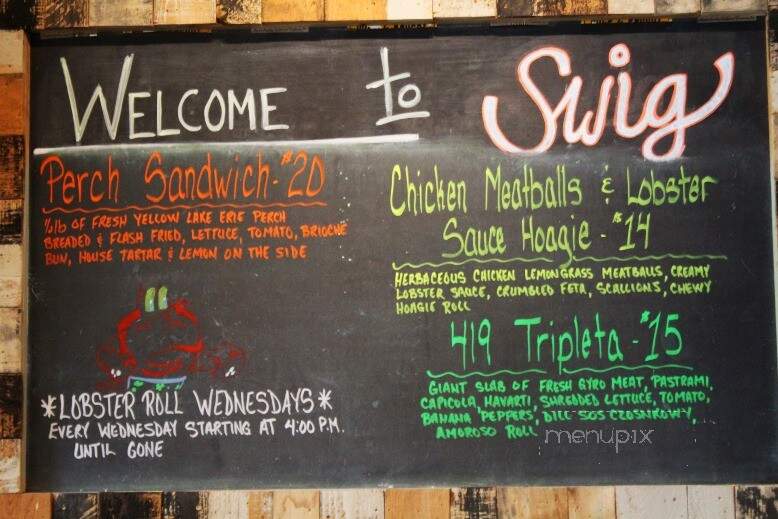 WELCOME to Swig
Perch Sandwich - $20
½ lb OF FRESH YELLOW LAKE ERIE PERCH
BREADED & FLASH FRIED, LETTUCE, TOMATO, BRIOCHE
BUN, HOUSE TARTAR & LEMON ON THE SIDE
*LOBSTER ROLL WEDNESDAYS*
EVERY WEDNESDAY STARTING AT 4:00 P.M.
UNTIL GONE
Chicken Meatballs & Lobster
Sauce Hoagie - $14
HERBACEOUS CHICKEN LEMONGRASS MEATBALLS, CREAMY
LOBSTER SAUCE, CRUMBLED FETA, SCALLIONS, CHEWY
HOAGIE ROLL
419 Tripleta - $15
GIANT SLAB OF FRESH GYRO MEAT, PASTRAMI,
CAPICOLA, HAVARTI, SHREDDED LETTUCE, TOMATO,
BANANA PEPPERS, DILL SOS CZOSNKOWY,
AMOROSO ROLL
menupix